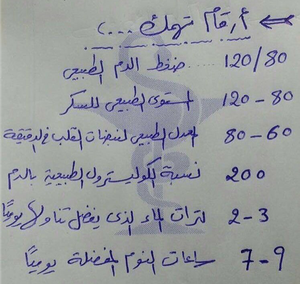 أرقام تهمك ...
120/80 ..... ضغط الدم الطبيعي
120 - 80 المستوى الطبيعي للسكر
80 - 60 المعدل الطبيعي لنبضات القلب في الدقيقة
200 نسبة الكوليسترول الطبيعية بالدم
2-3 لترات الماء الذي يفضل تناولها يوميًا
7-9 ساعات النوم المفضلة يوميًا